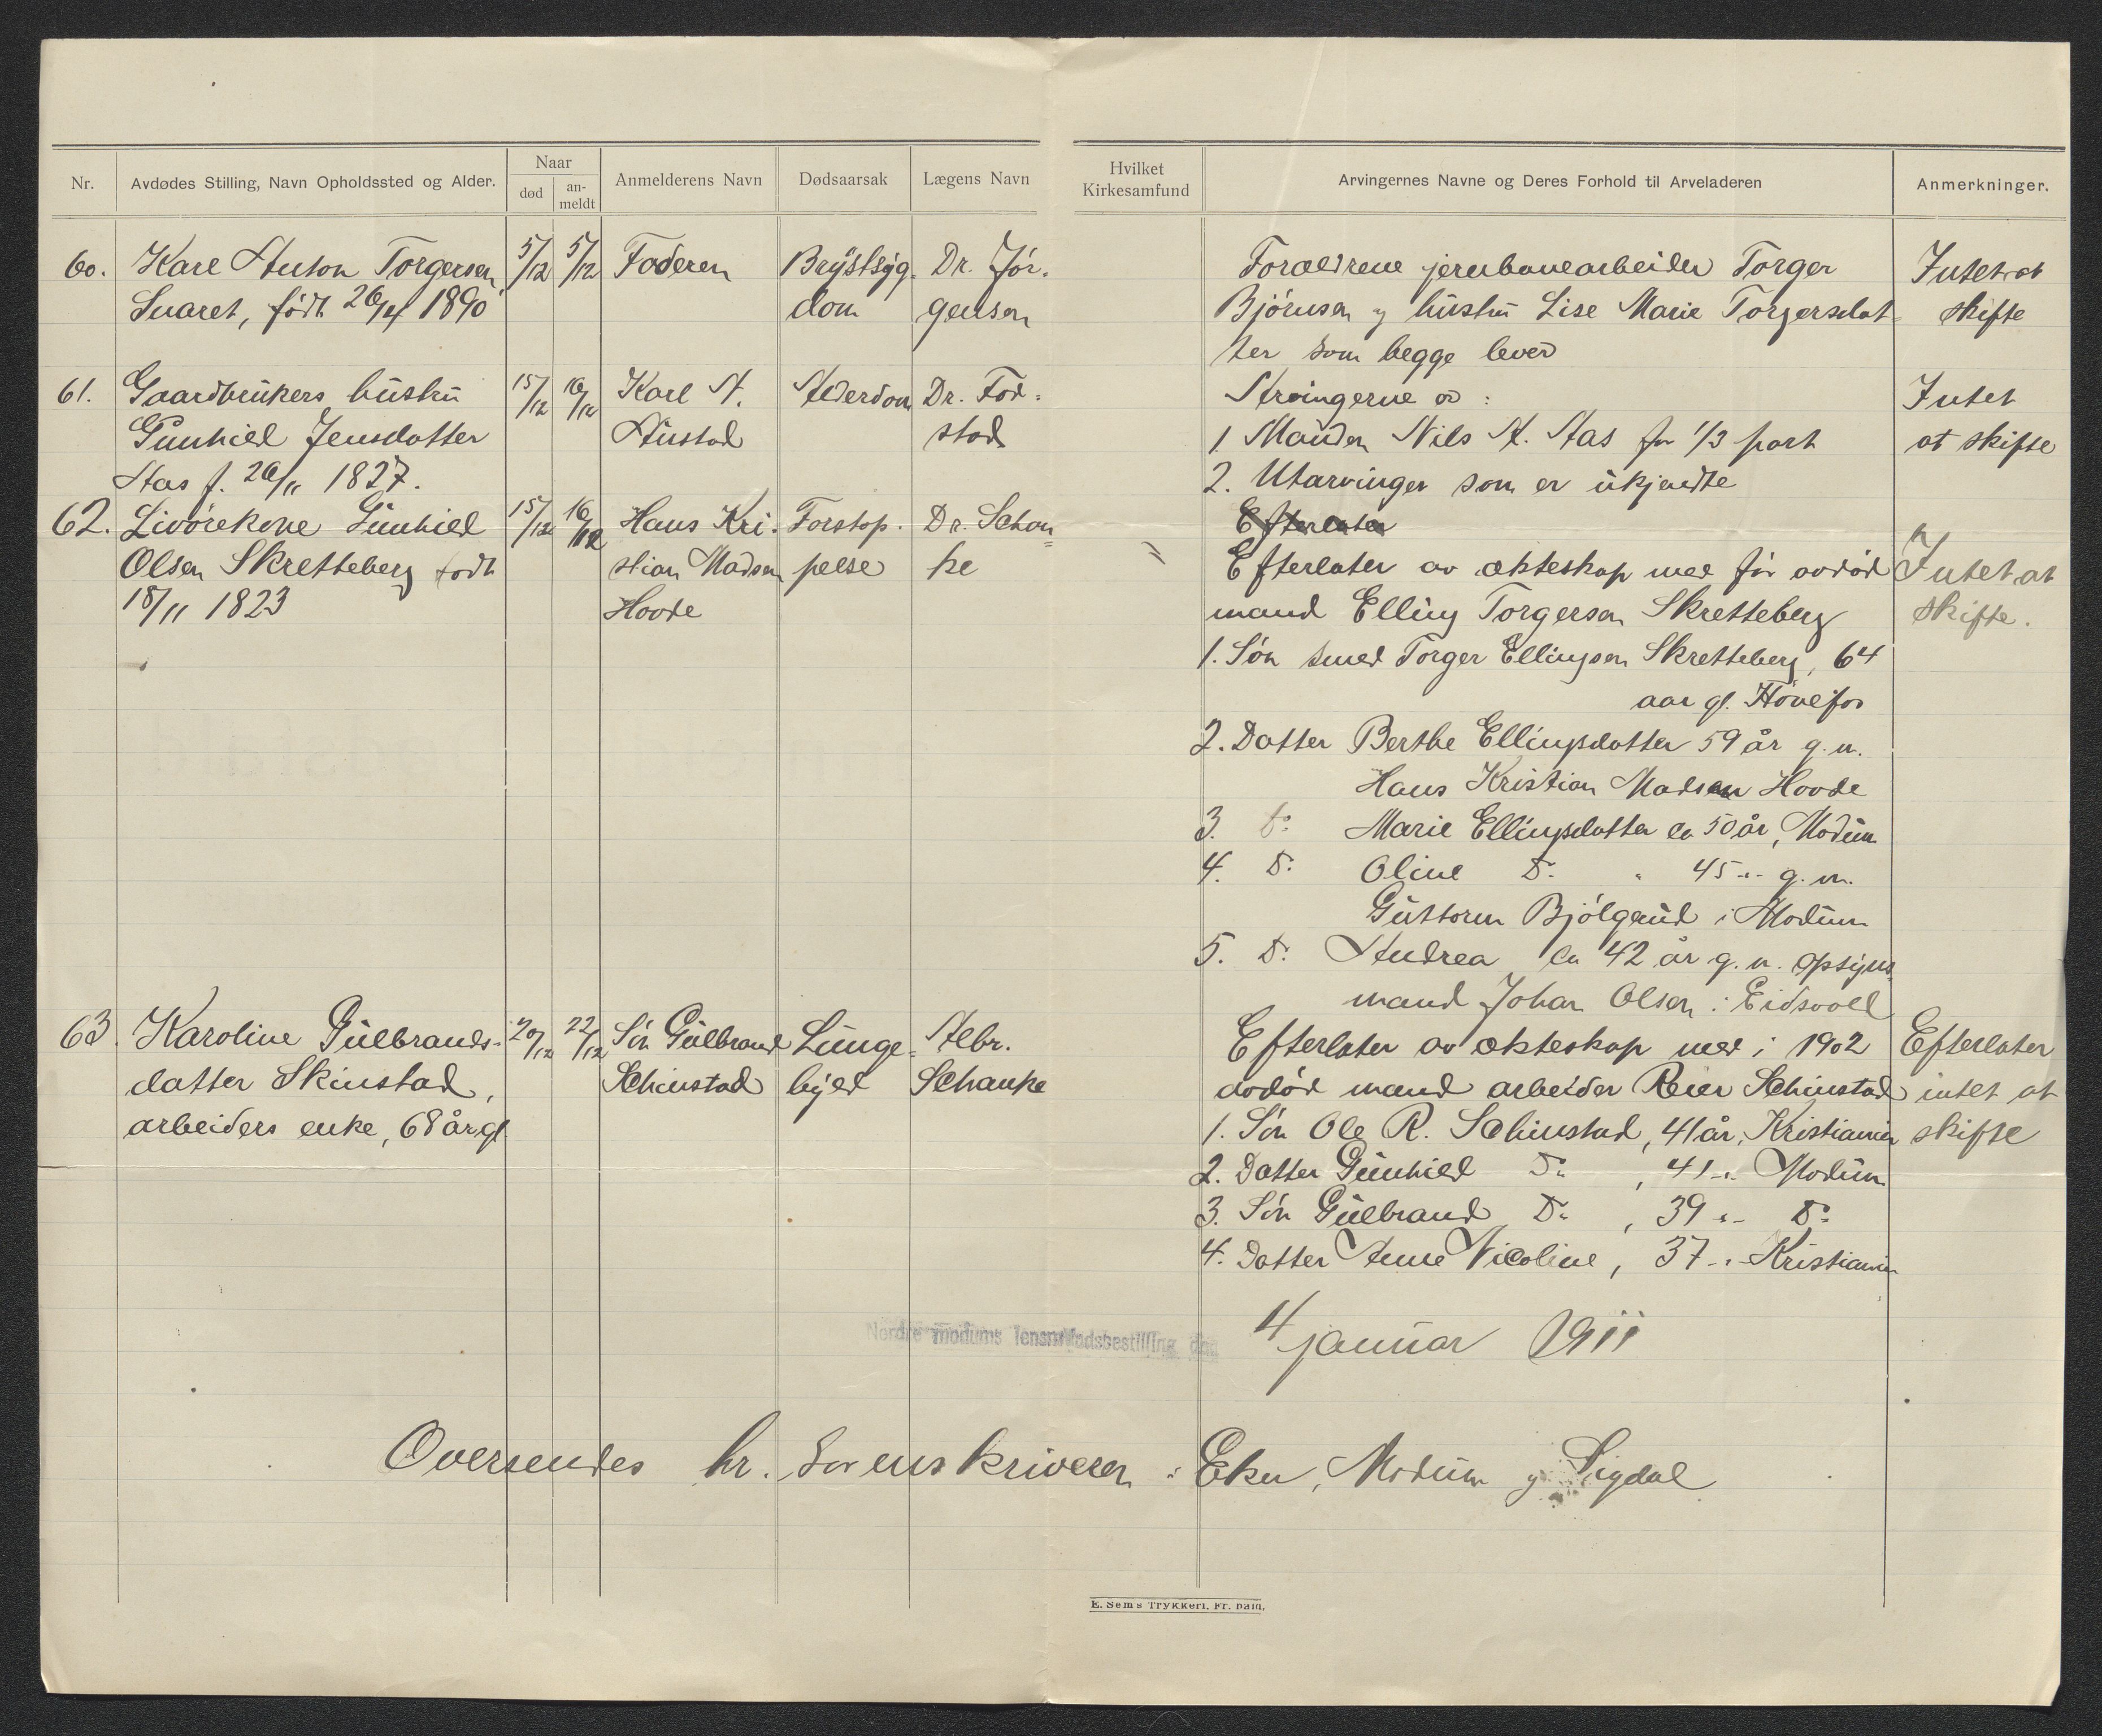 Nr.
Avdødes Stilling, Navn Opholdssted og Alder.
Naar
død
an-
meldt
Anmelderens Navn
Dødsaarsak
Lægens Navn
Hvilket
Kirkesamfund
Arvingernes Navne og Deres Forhold til Arveladeren
Anmerkninger.
60. Karl Anton Torgersen 5/12 5/12 Faderen Brystsyg- Dr. Jør- Forældrene jernbanearbeider Torger Intet at
Snaret, født 26/4 1890 dom gensen Bjørnsen og hustru Lise Marie Torgersdat- skifte
ter som begge lever
61. Gaardbrukers hustru 15/12 16/12 Karl A. Alderdom Dr. Fod- Arvingerne er: Intet
Gunhild Jensdatter Austad stad 1 Manden Nils A. Aas for 1/3 part at skifte
Aas f. 26/11 1827. 2. Utarvinger som er ukjendte
62. Livørekone Gunhild 15/12 16/12 Hans Kri- Forstop- Dr. Schan- Efterlater
Olsen Skretteberg født stian Madsen pelse ke Efterlater av ekteskap med før avdød Intet at
18/11 1823 Hovde mand Elling Torgersen Skretteberg skifte.
1. Søn smed Torger Ellingsen Skretteberg, 64
aar gl. Hønefos
2. Datter Berthe Ellingsdatter 59 år g.m.
Hans Kristian Madsen Hovde
3. Do Marie Ellingsdatter ca 50 år, Modum
4. Do Oline Do " 45 -"- g.m.
Guttorm Bjølgerud i Modum
5. Do Andrea ca 42 år g.m. opsyns-
mand Johan Olsen i Eidsvoll
63. Karoline Gulbrands- 20/12 22/12 Søn Gulbrand Lunge- Albr. Efterlater av ekteskap med i 1902 Efterlater
datter Skinstad, Schinstad byld Schanke avdød mand arbeider Reier Schinstad intet at
arbeiders enke, 68 år gl. 1. Søn Ole R. Schinstad, 41 år, Kristiania skifte
2. Datter Gunhild Do , 41 -"- Modum
3. Søn Gulbrand Do , 39 -"- Do
4. Datter Anne Nicoline, 37 -"- Kristiania
Nordre Modums lensmandsbestilling den 4 januar 1911
Oversendes hr. Sorenskriveren i Eker, Modum og Sigdal
E. Sems Trykkeri. Fr. hald.